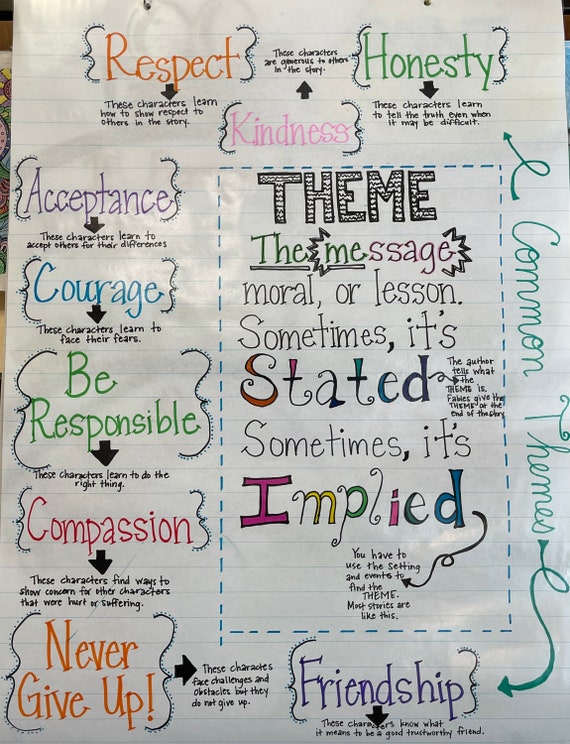 Respect
These characters learn
how to show respect to
others in the story.
These characters
are generous to others
in the story.
Kindness
Honesty
These characters learn
to tell the truth even when
it may be difficult.
Common Themes
Acceptance
These characters learn to
accept others for their differences
Courage
These characters learn to
face their fears.
Be
Responsible
These characters learn to do the
right thing.
Compassion
These characters find ways to
show concern for other characters
that were hurt or suffering.
Never
Give Up!
These characters
face challenges and
obstacles but they
do not give up.
Friendship
These characters know what
it means to be a good trustworthy friend.
THEME
The message
moral, or lesson.
Sometimes, it's
Stated
The author
tells what
the
THEME is.
Fables give the
THEME at the
end of the story
Sometimes, it's
Implied
You have to
use the setting
and events to
find the
THEME.
Most stories are
like this.